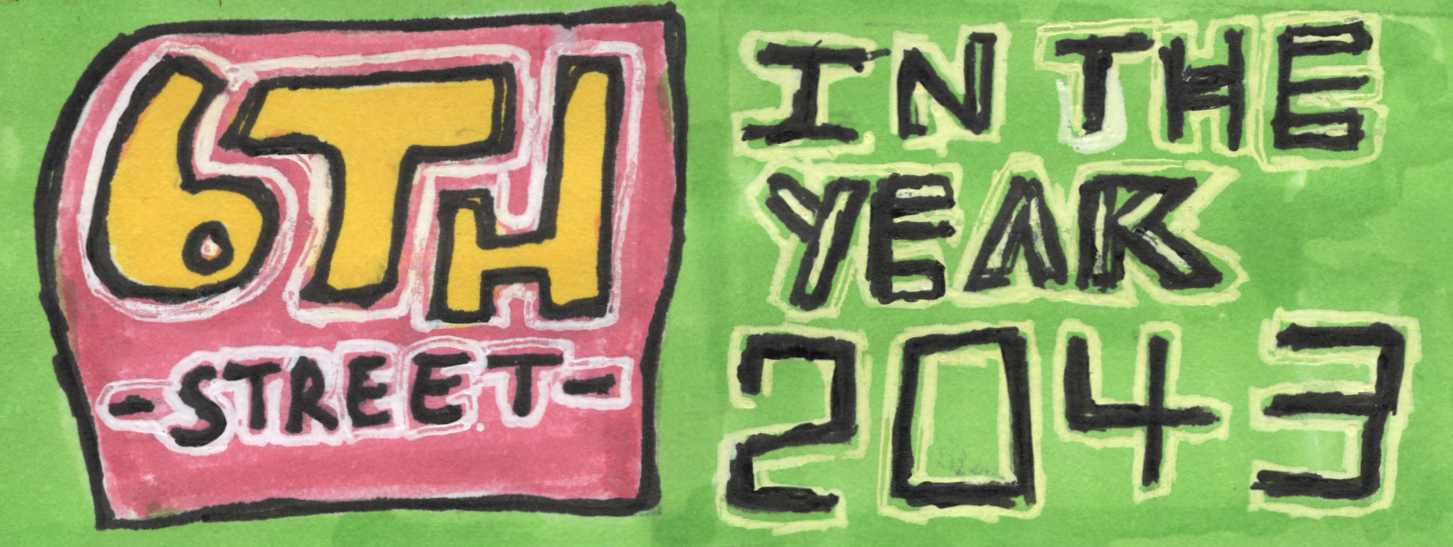 6TH
-STREET-
IN THE
YEAR
2043